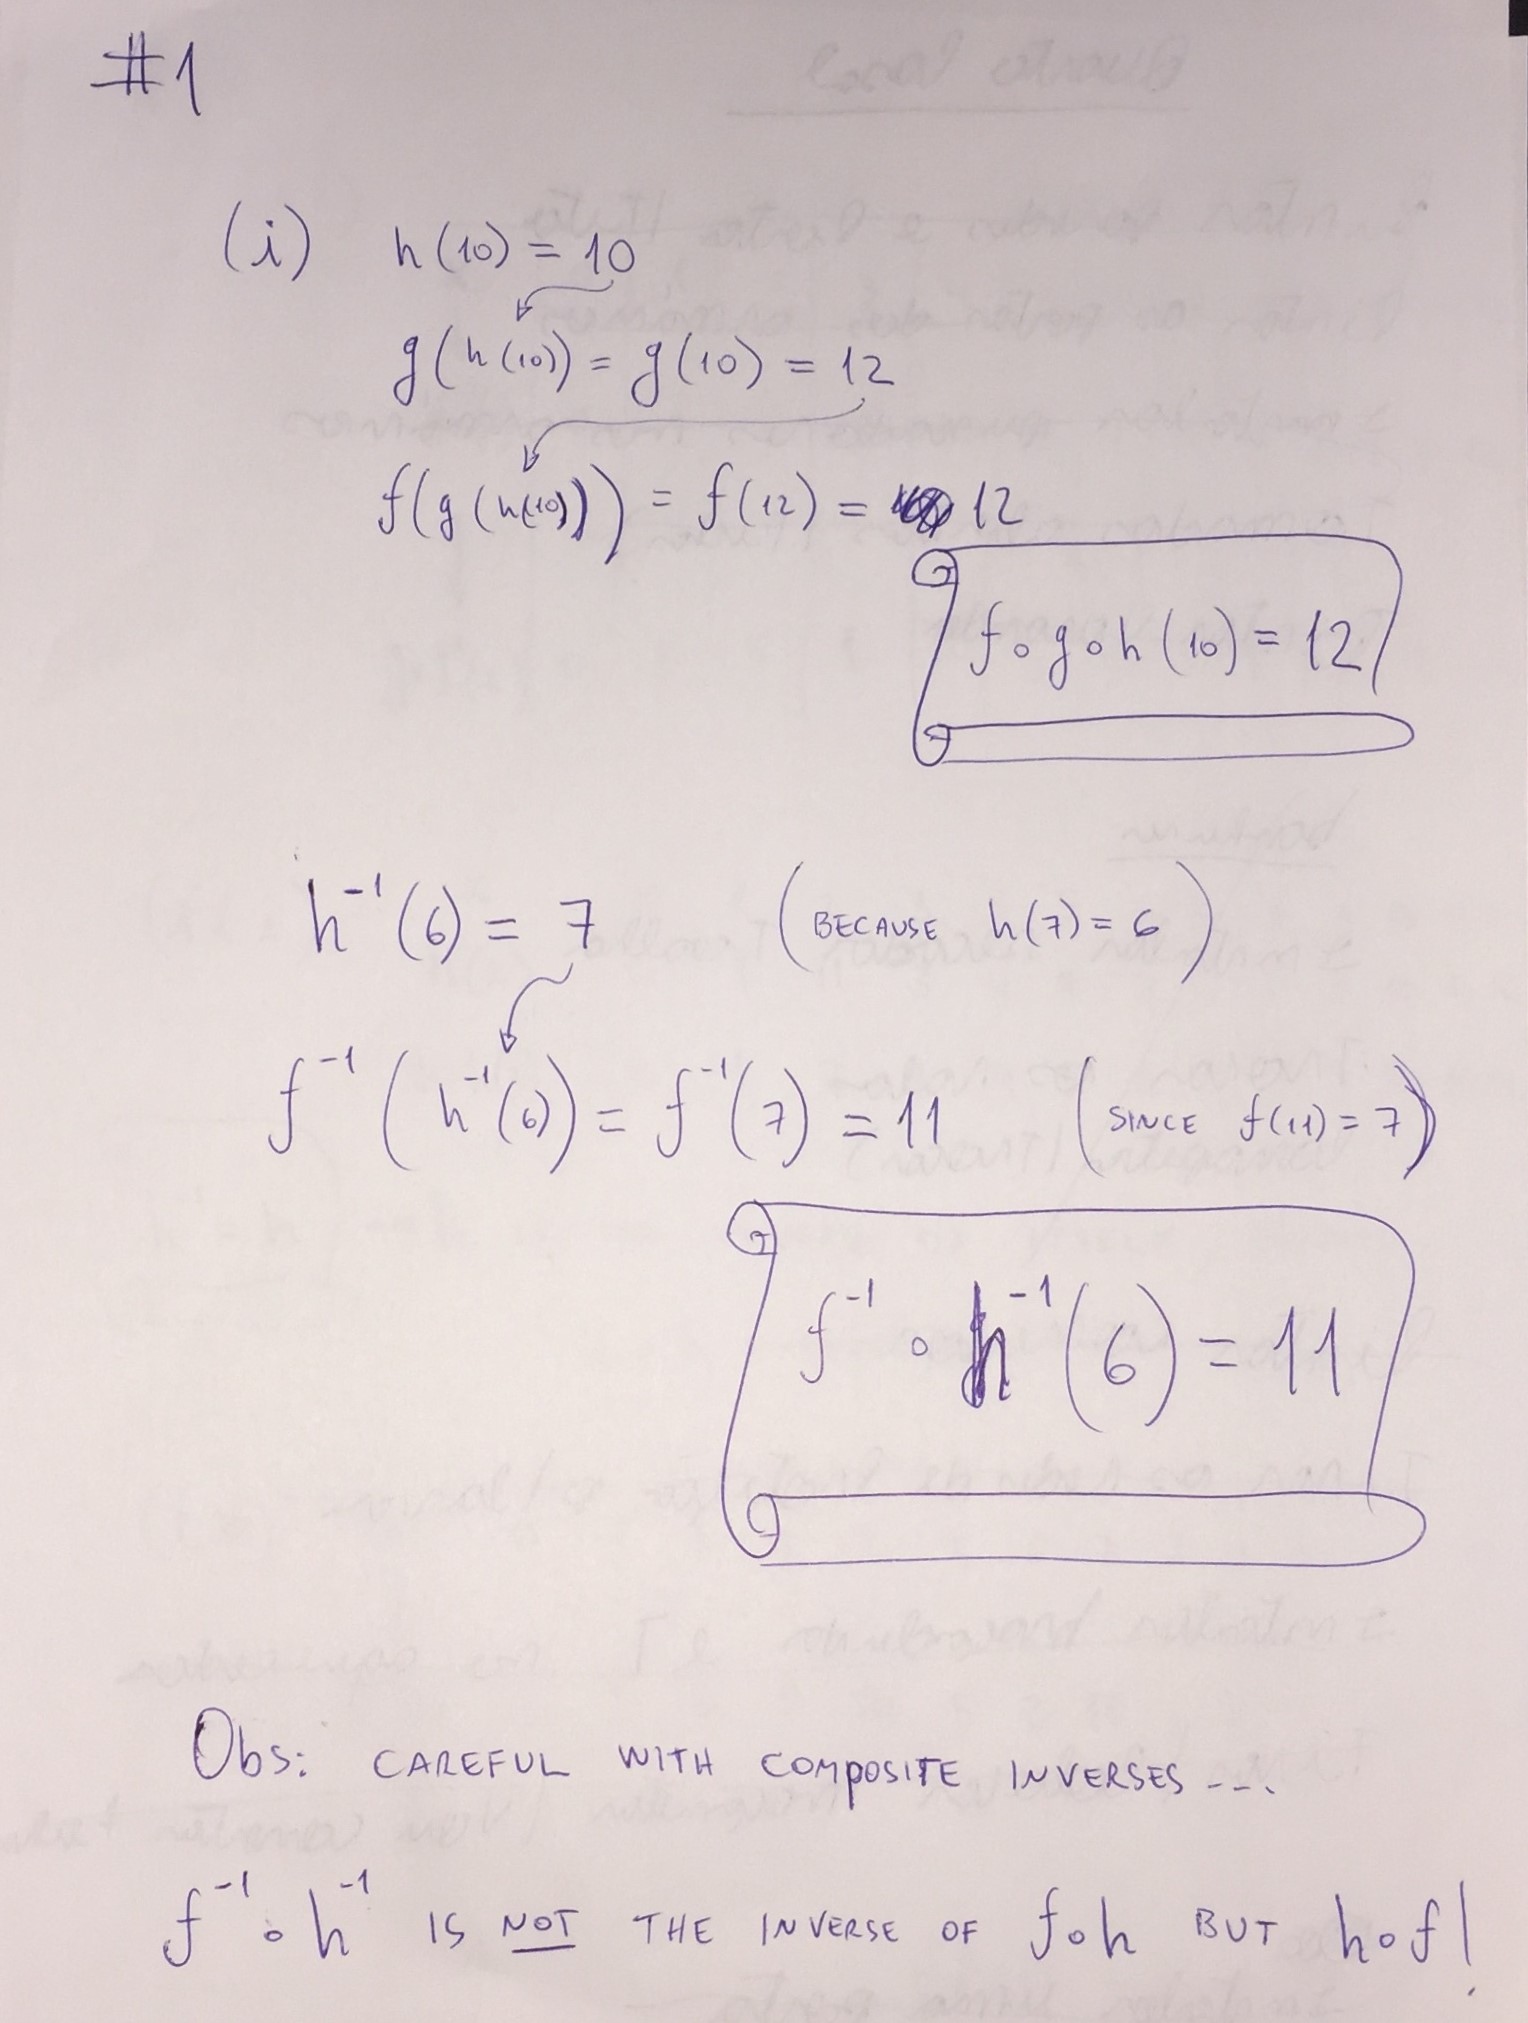 #1
(i) h(10) = 10
g(h(10)) = g(10) = 12
f(g(h(10))) = f(12) = 12
f∘g∘h(10) = 12
h⁻¹(6) = 7 (BECAUSE h(7) = 6)
f⁻¹(h⁻¹(6)) = f⁻¹(7) = 11 (SINCE f(11) = 7)
f⁻¹∘h⁻¹(6) = 11
Obs: CAREFUL WITH COMPOSITE INVERSES ---.
f⁻¹∘h⁻¹ IS NOT THE INVERSE OF f∘h BUT h∘f!